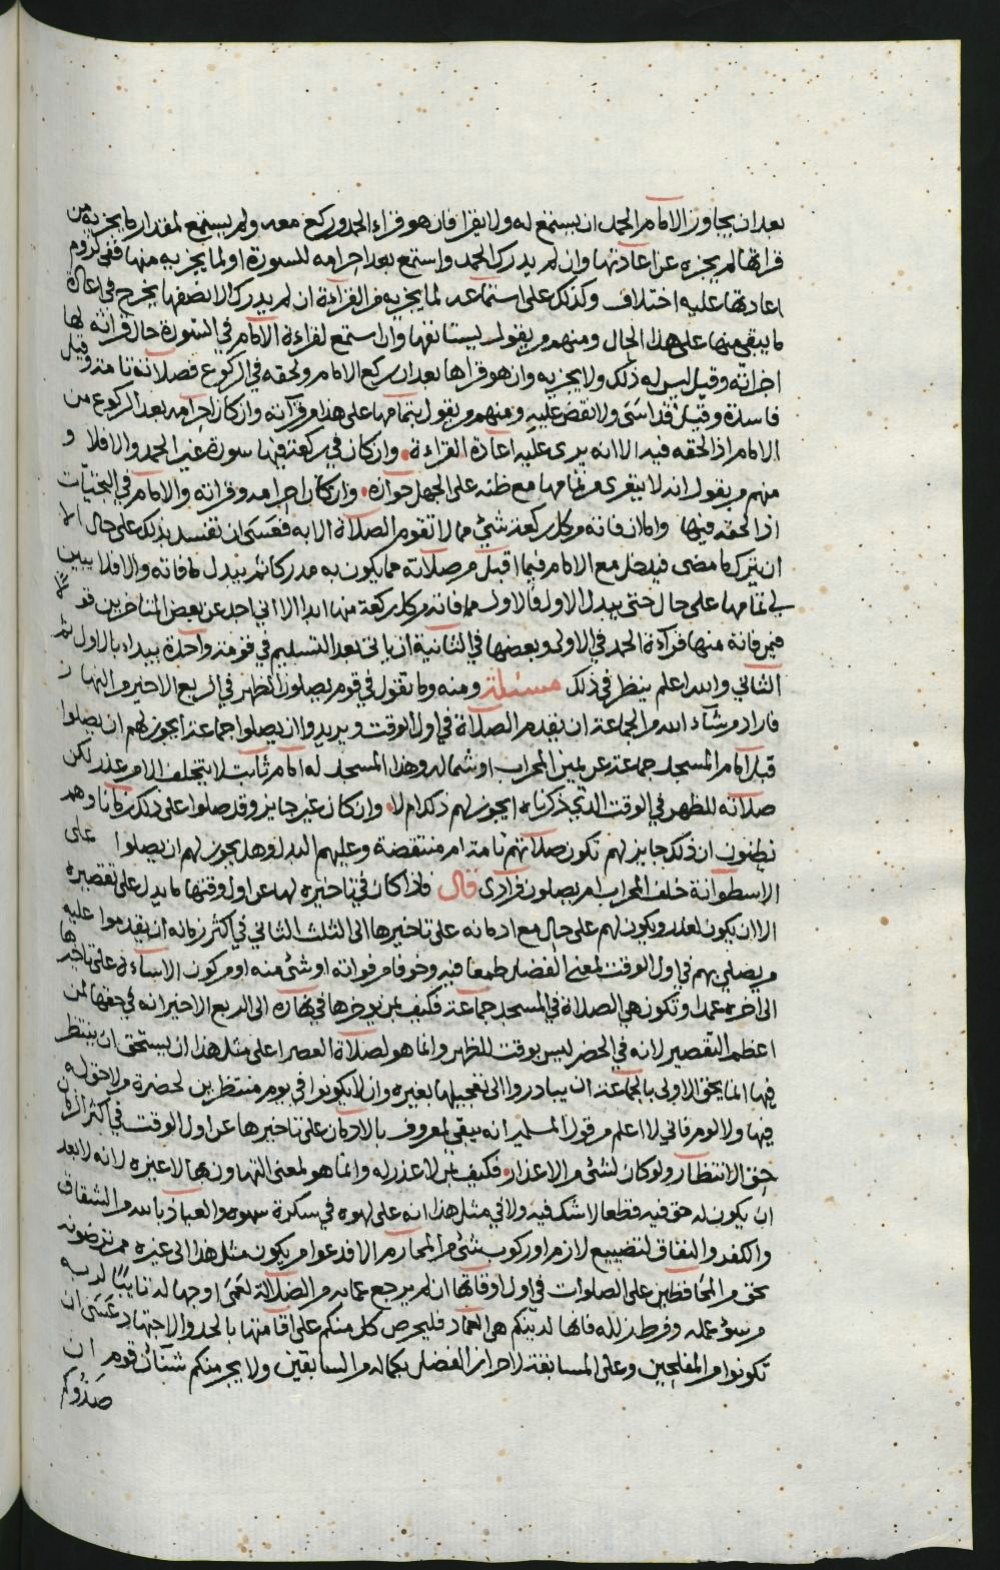 بعد ان يجاوز الامام الحمد ان يستمع له ولا يقرا فان هو قراء الحمد وركع معه ولم يستمع لمقدار ما يجزيه من
قراتها لم يجزه عن اعادتها وان لم يدرك الحمد واستمع بعد احرامه للسورة او لما يجزيه منها ففي لزوم
اعادتها عليه اختلاف وكذلك على استماعه لما يجزيه من القراءة ان لم يدرك الا نصفها يخرج في اعادة
ما يبقى منها على هذا الحال ومنهم من يقول يستانفها وان استمع لقراءة الامام في السورة حال قراته لها
اجزاته وقيل ليس له ذلك ولا يجزيه وان هو قراها بعد ان ركع الامام ولحقه في الركوع فصلاته تامة وقيل
فاسدة وقيل قد اسَىَ ولا نقض عليه ومنهم من يقول بتمامها على هذا من قرآته وان كان احرامه بعد الركوع من
الامام اذا لحقه فيه الا انه يرى عليه اعادة القراءة وان كان في ركعة فيها سورة غير الحمد والا فلا و
منهم من يقول انه لا يتعرى من تمامها مع ظنه على الجهل جوازه وان كان احرامه وقراته والامام في التحيّات
اذا لحقه فيها واما ان فاته من كل ركعة شئ مما لا تقوم الصلاة الا به فعَسَى ان تفسد بذلك على حال الا
ان يترك ما مضى فيدخل مع الامام فيما اقبل من صلاته مما يكون به مدركا ثم يبدل ما فاته والا فلا يبين
لي تمامها على حال حتى يبدل الاول فالاول مما فاته من كل ركعة منها ابدا الا اني اجد عن بعض المتاخرين
فيمن فاته منها قرآءة الحمد في الاولى وبعضها في الثانية ان ياتي بعد التسليم في قومة واحدة يبداء بالاول ثم
الثاني والله اعلم ينظر في ذلك مسئلة ومنه وما تقول في قوم يصلون الظهر في الربع الاخير من النهار
فاراد من شآء الله من الجماعة ان يقدم الصلاة في اول الوقت ويريدوا ان يصلوا جماعة ايجوز لهم ان يصلوا
قبل امام المسجد جماعة عن يمين المحراب او شماله وهذا المسجد له امام ثابت لا يتخلف الا من عذر لكن
صلاته للظهر في الوقت الذي ذكرناه ايجوز لهم ذلك ام لا وان كان غير جايز وقد صلوا على ذلك زمانا وهم
يظنون ان ذلك جايز لهم تكون صلاتهم تامة ام منتقضة وعليهم البدل وهل يجوز لهم ان يصلوا على
الاسطوانة خلف المحراب ام يصلون فرادى قال فاذا كان في تاخيره لها عن اول وقتها ما يدل على تقصيره
الا ان يكون لعذر ويكون لهم على حال مع ادمانه على تاخيرها الى الثلث الثاني في اكثر زمانه ان يقدموا عليه
من يصلي بهم في اول الوقت لمعنى الفضل طمعا فيه وخوفا من فواته او شئ منه او من كون الاساءة على تاخيرها
الى اخره عمدا وتكون هي الصلاة في المسجد جماعة فكيف بمن يوخرها في نهاره الى الربع الاخير انه في حقها لمن
اعظم التقصير لانه في الحضر ليس بوقت للظهر وانما هو لصلاة العصر اعلى مثل هذا ان يستحق ان ينتظر
فيها انما يحق الاولى بالجماعة ان يبادروا الى تعجيلها بغيره وان لا يكونوا في يوم منتظرين لحضرة من لا حق له
فيها ولا لوم فاني لا اعلم من قول المسلمين انه يبقى لمعروف بالادمان على تاخيرها عن اول الوقت في اكثر الزمان
حق الانتظار ولو كان لشئ من الاعذار فكيف بمن لا عذر له وانما هو لمعنى التهاون بها لا غيره لانه لا بعد
ان يكون له حق فيه قطعا لا شك فيه ولا في مثل هذا انه على لهوه في سكرة سهوه والعياذ بالله من الشقاق
والكفر والنفاق لتضييع لازم او ركوب شئ من المحارم الا فدعوا من يكون مثل هذا الى غيره ممن ترضونه
بحق من المحافظين على الصلوات في اول اوقاتها ان لم يرجع عما به من الضلالة لعَمَى اوجها له تايبًا لربه
من سوء عمله وفرط زلله فانها لدينكم هي العماد فليحرص كل منكم على اقامتها بالجد والاجتهاد عَسَى ان
تكونوا من المفلحين وعلى المسابقة لاحراز الفضل بكماله من السابقين ولا يجرمنكم شنآن قوم ان
صَدُّوكم